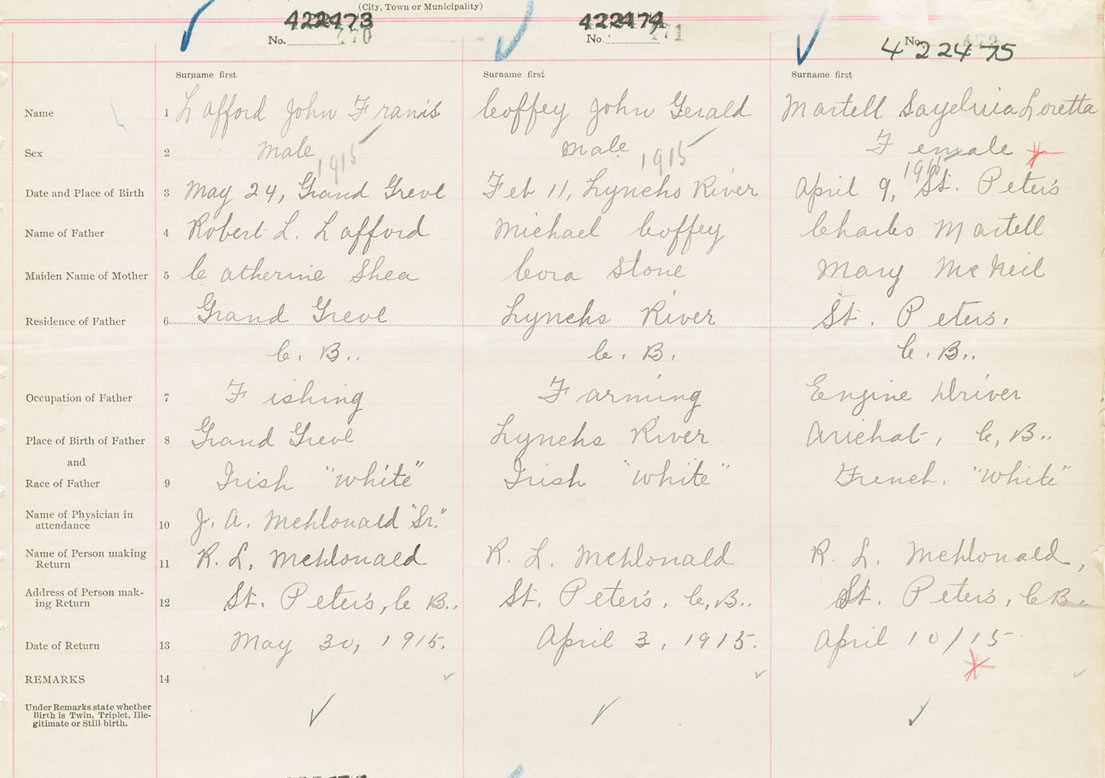 (City, Town or Municipality)
422473 422474
No. 770 No. 771 No. 422475
Surname first Surname first Surname first
Name 1 Lafford John Franis Coffey John Gerald Martell Sayelvia Loretta
Sex 2 Male Male Female
1915 1915 1915
Date and Place of Birth 3 May 24, Grand Greve Feb 11, Lynchs River April 9, St. Peters
Name of Father 4 Robert L. Lafford Michael Coffey Charles Martell
Maiden Name of Mother 5 Catherine Shea Cora Stone Mary McNeil
Residence of Father 6 Grand Greve Lynchs River St. Peters,
C. B.. C. B. C. B..
Occupation of Father 7 Fishing Farming Engine Driver
Place of Birth of Father 8 Grand Greve Lynchs River Arichat, C, B..
and
Race of Father 9 Irish "White" Irish "White" French. "White"
Name of Physician in
attendance 10 J. A. McDonald "Sr."
Name of Person making
Return 11 R. L. McDonald R. L. McDonald R. L. McDonald,
Address of Person mak-
ing Return 12 St. Peter's, C B.. St. Peter's, C, B.. St. Peter's, C B.
Date of Return 13 May 30, 1915. April 3, 1915. April 10/15
REMARKS 14
Under Remarks state whether
Birth is Twin, Triplet, Ille-
gitimate or Still-birth.